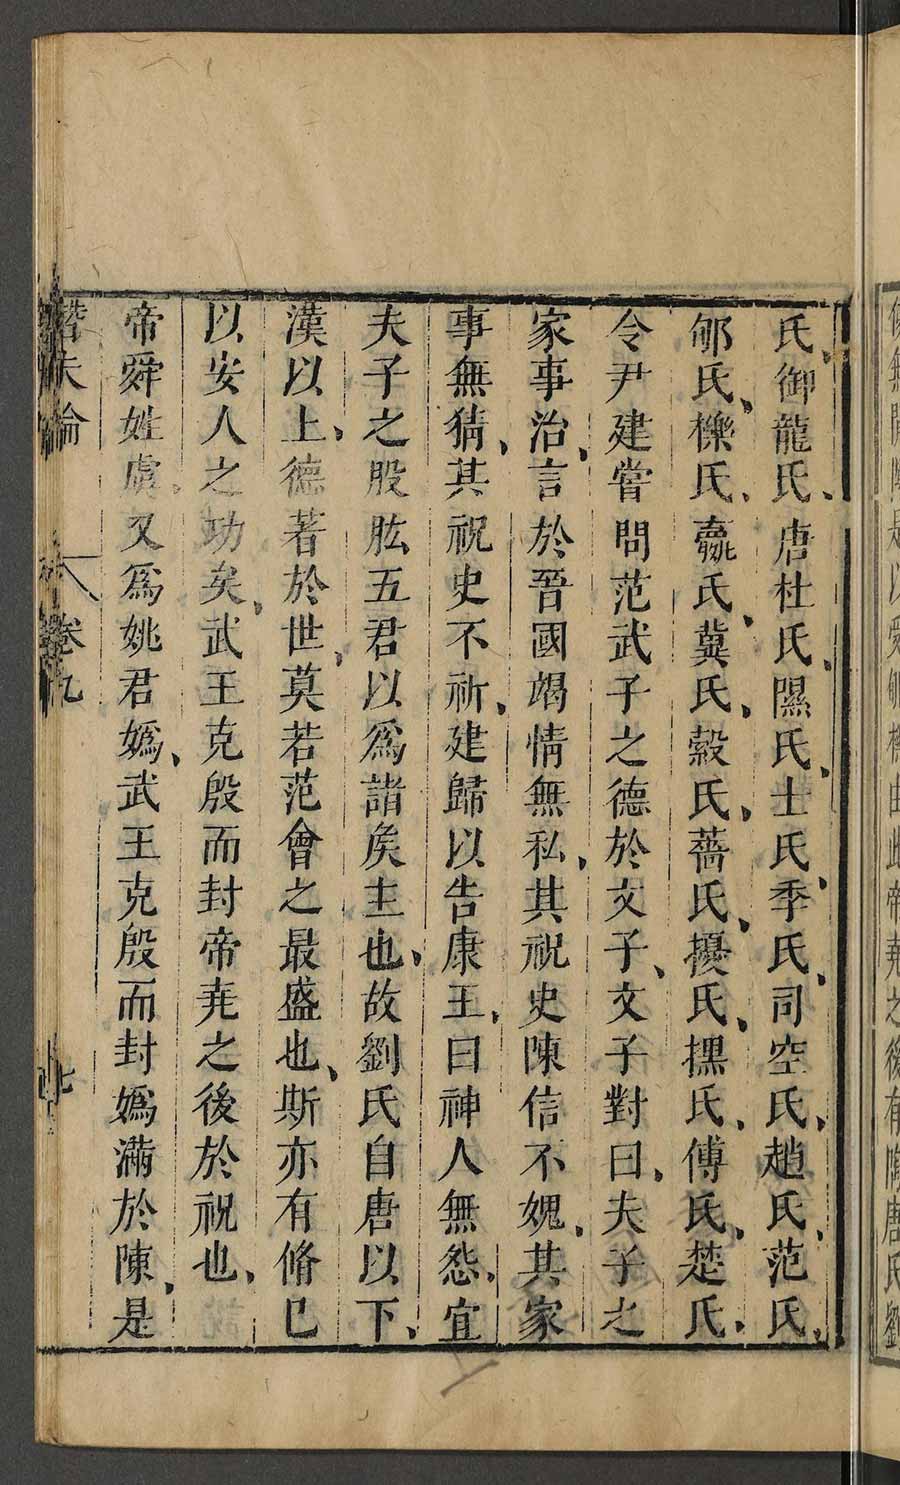 由此帝堯之後有陶唐氏劉
氏御龍氏唐杜氏隰氏士氏季氏司空氏趙氏范氏
郇氏櫟氏氏冀氏縠氏薔氏擾氏氏傅氏楚氏
令尹建嘗問范武子之德於文子文子對曰夫子之
家事治言於晉國竭情無私其祝史陳信不媿其家
事無猜其祝史不祈建歸以告康王王曰神人無怨宜
夫子之股肱五君以爲諸侯主也故劉氏自唐以下
漢以上德著於世莫若范會之最盛也斯亦有脩己
以安人之功矣武王克殷而封帝堯之後於祝也
帝舜姓虞又爲姚君嬀武王克殷而封嬀滿於陳是
潛夫論 卷九 七